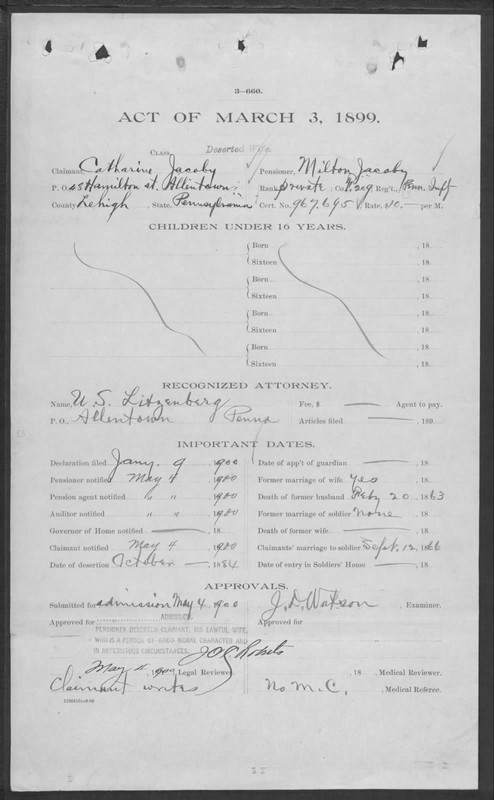 3—660.
ACT OF MARCH 3, 1899.
CLASS Deserted Wife
Claimant, Catharine Jacoby Pensioner, Milton Jacoby
P. O. 45 Hamilton st. Allentown Rank private; Co. 209 Reg't., Penn. Inf
County Lehigh, State, Pennsylvania Cert. No. 967,695, Rate, $10.— per M.
CHILDREN UNDER 16 YEARS.
Born , 18
Sixteen , 18
Born , 18
Sixteen , 18
Born , 18
Sixteen , 18
Born , 18
Sixteen , 18
RECOGNIZED ATTORNEY.
Name, U. S. Litzenberg Fee, $ — Agent to pay.
P. O., Allentown Penna Articles filed — , 189
IMPORTANT DATES.
Declaration filed Jany. 9 1900 Date of app't of guardian — , 18
Pensioner notified May 4 1900 Former marriage of wife yes , 18
Pension agent notified " " 1900 Death of former husband Feby 20 1863
Auditor notified " " 1900 Former marriage of soldier None , 18
Governor of Home notified — , 18 Death of former wife — , 18
Claimant notified May 4 1900 Claimants' marriage to soldier Sept. 12, 1866
Date of desertion October — 1884 Date of entry in Soldiers' Home — , 18
APPROVALS.
Submitted for admission May 4 1900 J. D. Watson , Examiner.
Approved for ADMISSION Approved for
PENSIONER DESERTED CLAIMANT, HIS LAWFUL WIFE,
WHO IS A PERSON OF GOOD MORAL CHARACTER AND
IN NECESSITOUS CIRCUMSTANCES.
May 4, 1900 Legal Reviewer. , 18 Medical Reviewer.
Claimant writes No M. C. , Medical Referee.